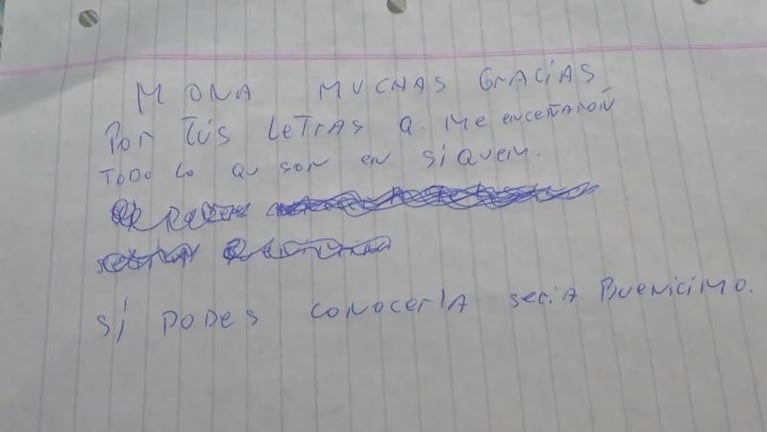 MONA MUCHAS GRACIAS
POR TUS LETRAS Q. ME ENCEÑARON
TODO LO QU SON EN SIQUEM.
SI PODES CONOCERLA SERIA BUENICIMO.